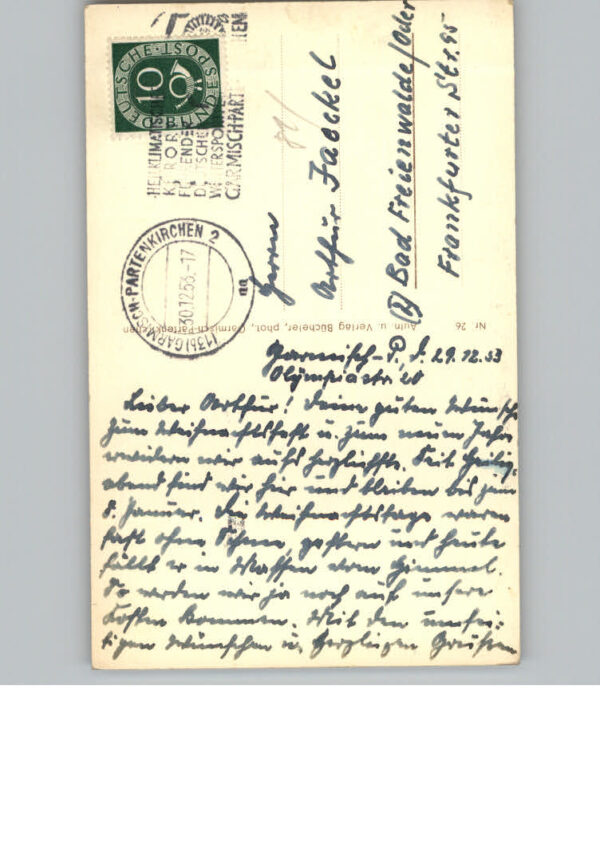 DEUTSCHE BUNDESPOST
10
HEILKLIMATISCHER
KURORT
DEUTSCHE
WINTERSPO
GARMISCH-PART
(13b) GARMISCH-PARTENKIRCHEN 2
30.12.53.-17
na
Herrn
Artur Jaeckel
Bad Freienwalde/Oder
Frankfurter Str. 95
Nr 26 Aufn. u. Verlag Bücheler, phot., Garmisch-Partenkirchen
Garmisch-P., d. 29.12.53
Olympiastr 20
Lieber Artur! Deine guten Wünsche
zum Weihnachtsfest u. zum neuen Jahr
erwidern wir aufs herzlichste. Seit Heilig-
abend sind wir hier und bleiben bis zum
8. Januar. Die Weihnachtstage waren
fast ohne Schnee, gestern und heute
fällt er in Massen vom Himmel.
So werden wir ja noch auf unsere
Kosten kommen. Mit den
Wünschen u. herzlichen Grüssen